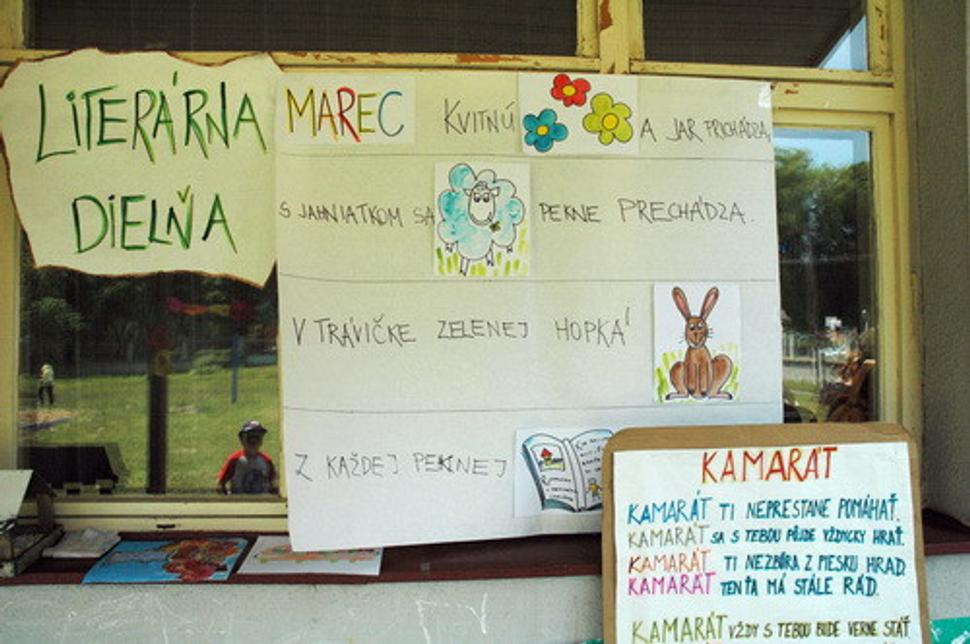 LITERÁRNA
DIELŇA
MAREC KVITNÚ A JAR PRICHÁDZA,
S JAHNIATKOM SA PEKNE PRECHÁDZA.
V TRÁVIČKE ZELENEJ HOPKÁ
Z KAŽDEJ PEKNEJ
KAMARÁT
KAMARÁT TI NEPRESTANE POMÁHAŤ.
KAMARÁT SA S TEBOU PÔJDE VŽDYCKY HRAŤ.
KAMARÁT TI NEZBÚRA Z PIESKU HRAD.
KAMARÁT TEN ŤA MÁ STÁLE RÁD.
KAMARÁT VŽDY S TEBOU BUDE VERNE STÁŤ